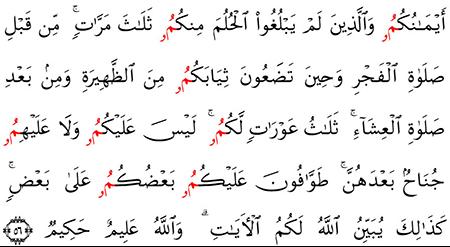 أَيْمَٰنُكُمُۥ وَالَّذِينَ لَمْ يَبْلُغُوا۟ الْحُلُمَ مِنكُمُۥ ثَلَٰثَ مَرَّٰتٖۚ مِّن قَبْلِ
صَلَوٰةِ الْفَجْرِ وَحِينَ تَضَعُونَ ثِيَابَكُمُۥ مِنَ الظَّهِيرَةِ وَمِنۢ بَعْدِ
صَلَوٰةِ الْعِشَآءِۚ ثَلَٰثُ عَوْرَٰتٖ لَّكُمُۥۚ لَيْسَ عَلَيْكُمُۥ وَلَا عَلَيْهِمُۥ
جُنَاحُۢ بَعْدَهُنَّۚ طَوَّٰفُونَ عَلَيْكُمُۥ بَعْضُكُمُۥ عَلَىٰ بَعْضٖۚ
كَذَٰلِكَ يُبَيِّنُ اللَّهُ لَكُمُ الْأٓيَٰتِۗ وَاللَّهُ عَلِيمٌ حَكِيمٞ ٥٦